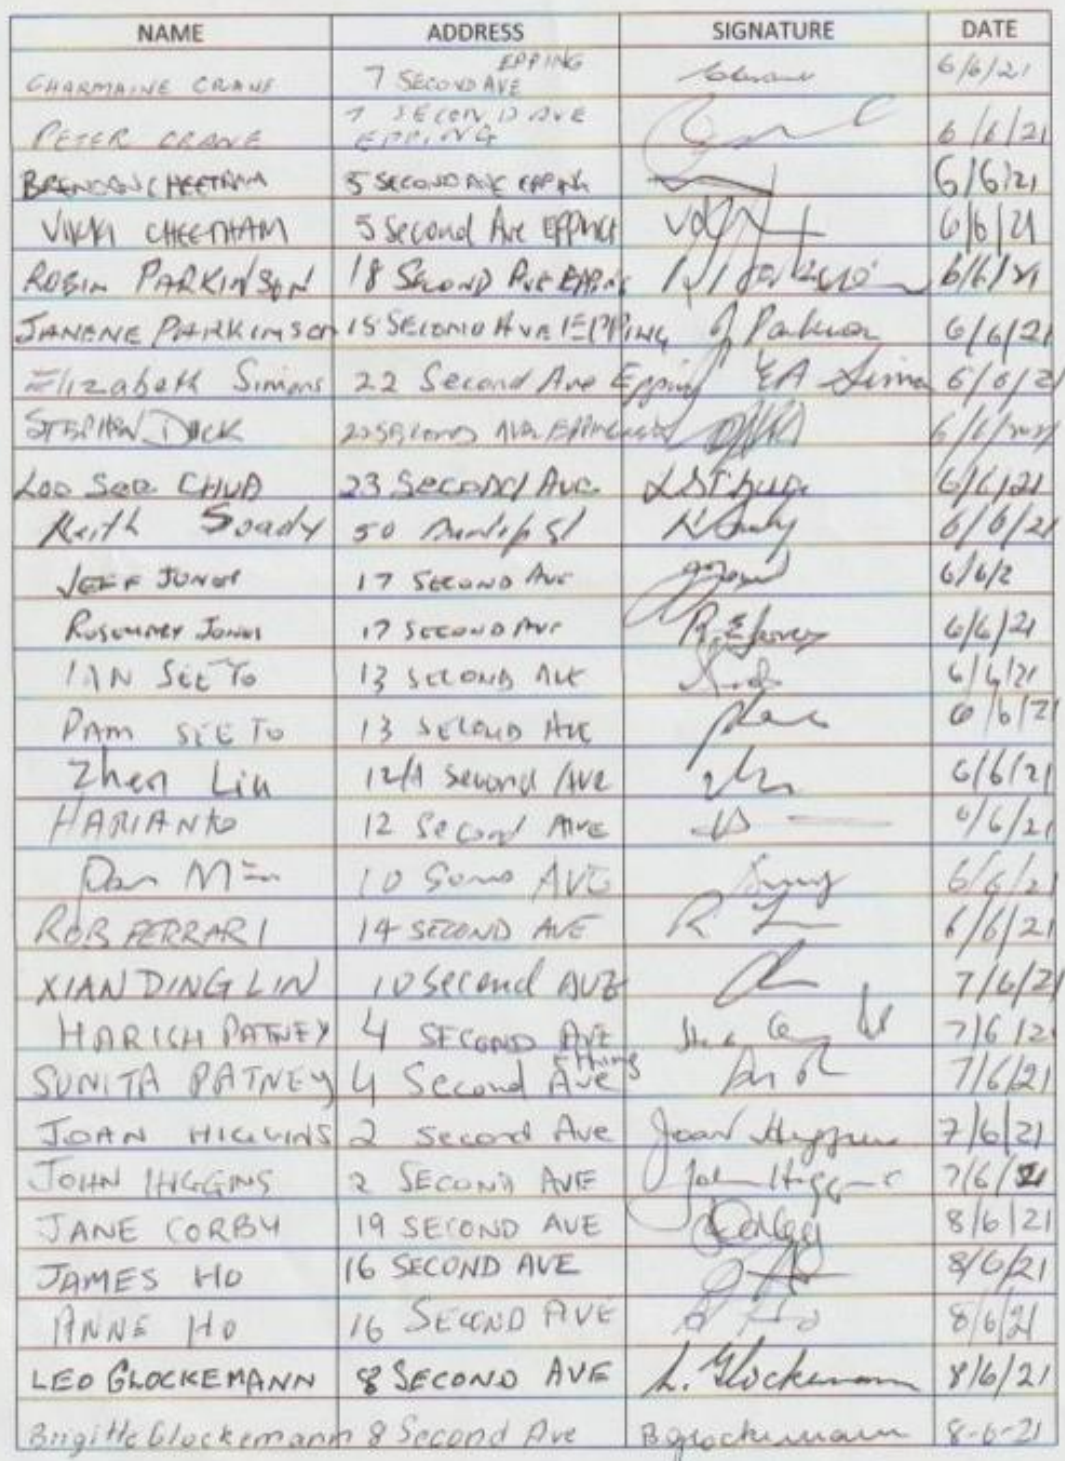 NAME ADDRESS SIGNATURE DATE
EPPING
CHARMAINE CRANE 7 SECOND AVE 6/6/21
7 SECOND AVE
PETER CRANE EPPING 6/6/21
BRENDON CHEETHAM 5 SECOND AVE EPPING 6/6/21
VIKKI CHEETHAM 5 Second Ave EPPING 6/6/21
ROBIN PARKINSON 18 SECOND AVE EPPING 6/6/21
JANENE PARKINSON 18 SECOND AVE EPPING J Parkinson 6/6/21
Elizabeth Simons 22 Second Ave Epping EA Simons 6/6/21
STEPHEN DICK SECOND AVE EPPING
LOO SEE CHUA 23 SECOND AVE. LSChua 6/6/21
Keith Soady 50 Dunlop St K Soady 6/6/21
JEFF JONES 17 SECOND AVE 6/6/2
ROSEMARY JONES 17 SECOND AVE R.E Jones 6/6/21
IAN SEETO 13 SECOND AVE 6/6/21
PAM SEETO 13 SECOND AVE 6/6/21
Zhen Liu Second Ave 6/6/21
HARIANTO 12 Second AVE 6/6/21
10 AVE 6/6/21
ROB FERRARI 14 SECOND AVE 6/6/21
XIAN DING LIN 10 Second AVE 7/6/21
HARISH PATNEY 4 SECOND AVE 7/6/21
Epping
SUNITA PATNEY 4 Second Ave 7/6/21
JOAN HIGGINS 2 Second Ave Joan Higgins 7/6/21
JOHN HIGGINS 2 SECOND AVE John Higgins 7/6/21
JANE CORBY 19 SECOND AVE 8/6/21
JAMES HO 16 SECOND AVE 8/6/21
ANNE HO 16 SECOND AVE A Ho 8/6/21
LEO GLOCKEMANN 8 SECOND AVE L. Glockemann 8/6/21
Brigitte Glockemann 8 Second Ave B Glockemann 8-6-21